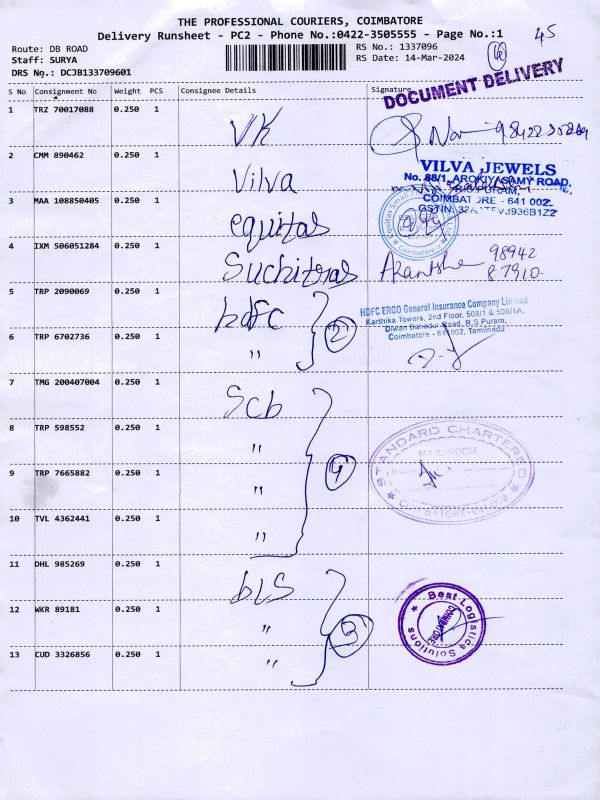 THE PROFESSIONAL COURIERS, COIMBATORE
Delivery Runsheet - PC2 - Phone No.:0422-3505555 - Page No.:1
45
Route: DB ROAD
Staff: SURYA
DRS No.: DCJB133709601
RS No.: 1337096
RS Date: 14-Mar-2024
DOCUMENT DELIVERY
S No Consignment No Weight PCS Consignee Details Signature
1 TRZ 70017088 0.250 1 VK
2 CMM 890462 0.250 1 Vilva
VILVA JEWELS
No. 88/1, AROKIYASAMY ROAD,
R.S. PURAM,
COIMBATORE - 641 002.
3 MAA 108850405 0.250 1 equitas
4 IXM 506051284 0.250 1 Suchitras
98942
87910
5 TRP 2090069 0.250 1 hdfc
HDFC ERGO General Insurance Company Limited
Karthika Towers, 2nd Floor, 508/1 & 508/1A,
Diwan Bahadur Road, R.S Puram,
Coimbatore - 641 002, Tamilnadu
6 TRP 6702736 0.250 1 "
2
7 TMG 200407004 0.250 1 Scb
8 TRP 598552 0.250 1 "
STANDARD CHARTERED
MAIL ROOM
COIMBATORE-641002
9 TRP 7665882 0.250 1 "
4
10 TVL 4362441 0.250 1 "
11 DHL 985269 0.250 1 bLS
12 WKR 89181 0.250 1 "
3
Best Logistics Solutions
COIMBATORE
13 CUD 3326856 0.250 1 "